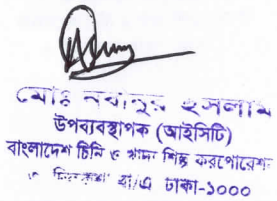 মোঃ নবীনুর ইসলাম
উপব্যবস্থাপক (আইসিটি)
বাংলাদেশ চিনি ও খাদ্য শিল্প করপোরেশন
বা/এ ঢাকা-১০০০